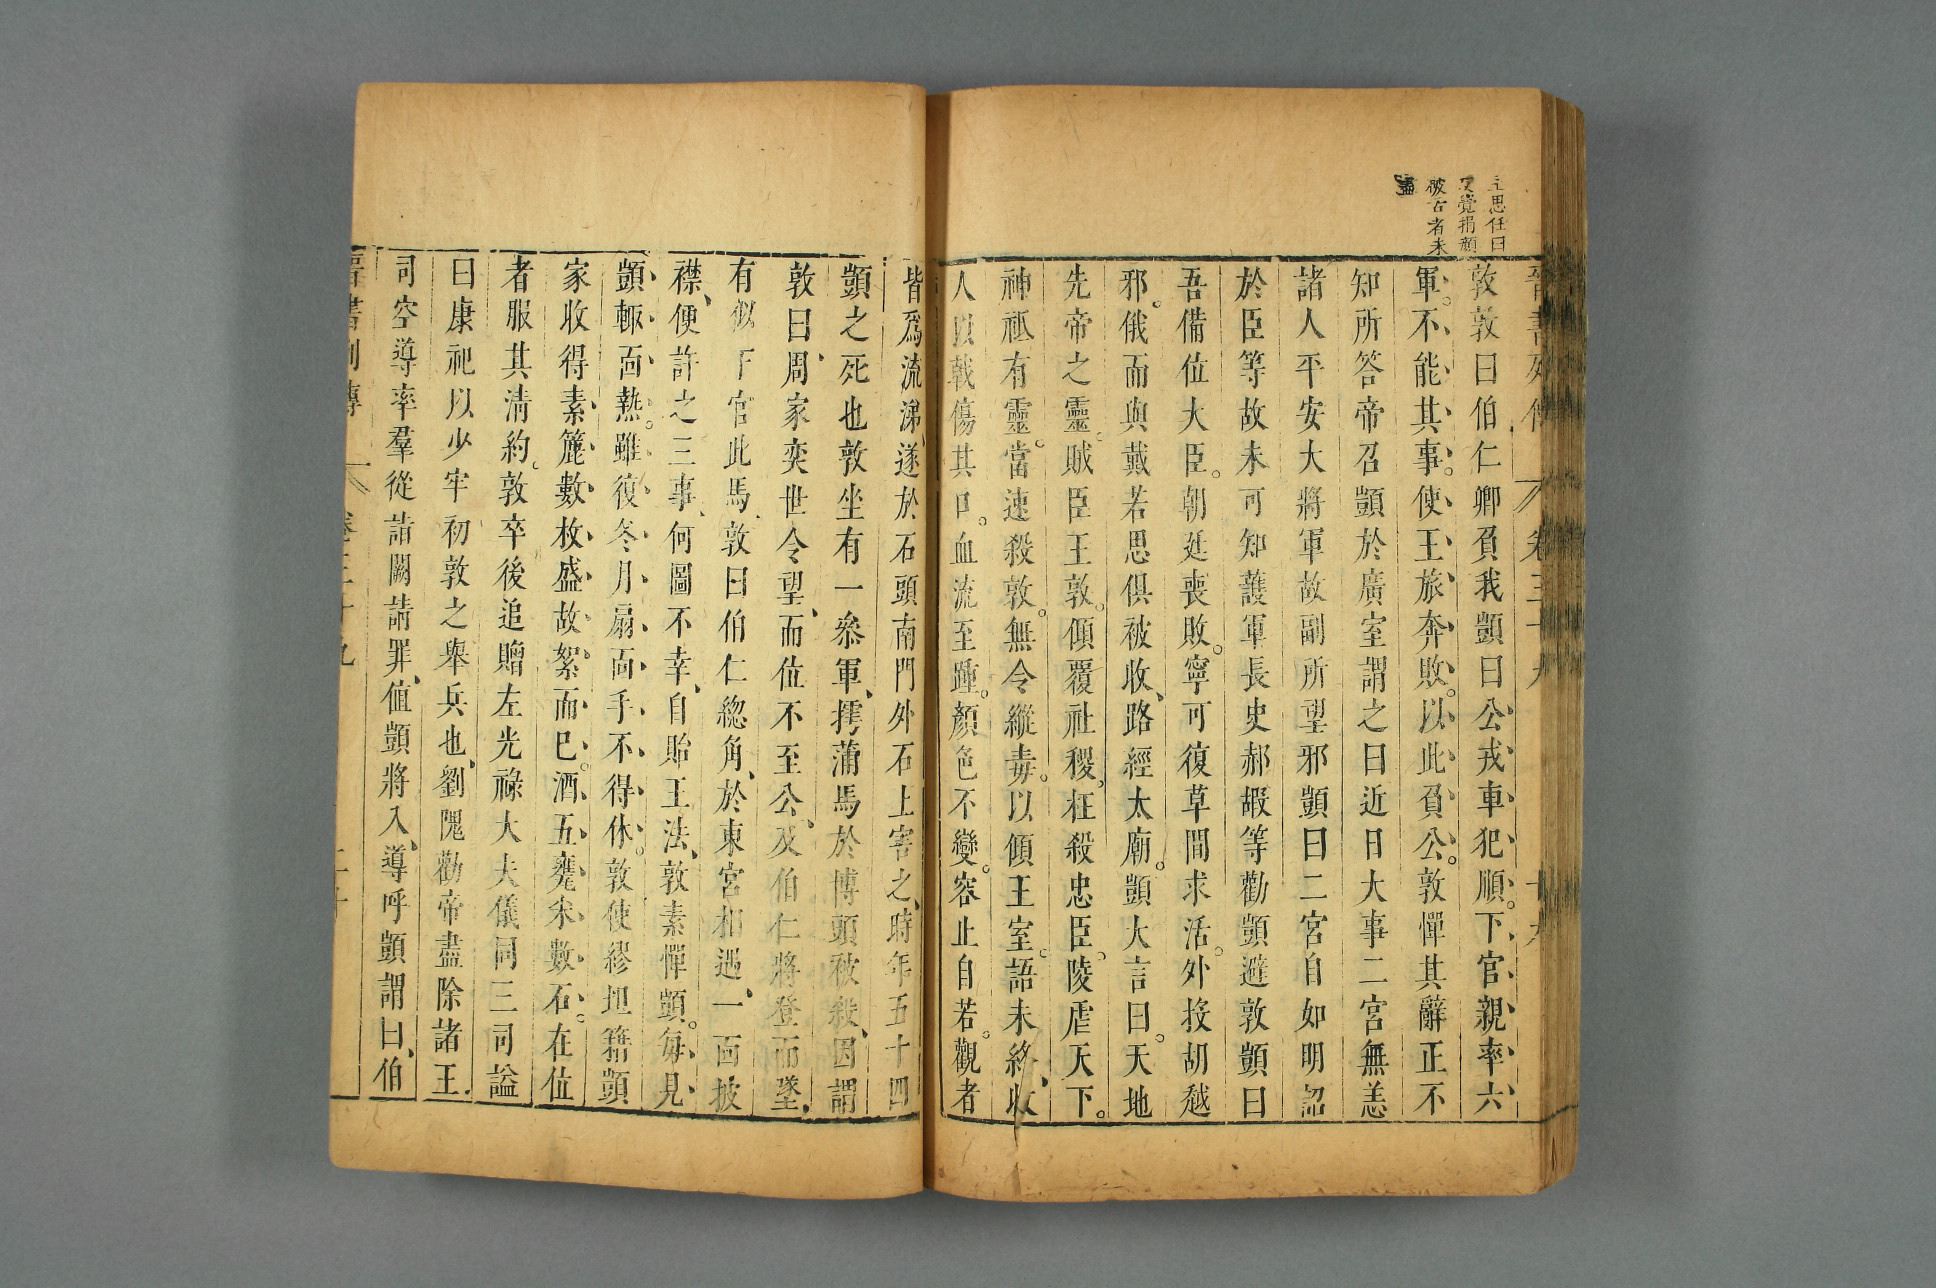 王思任曰
又覺捐頹
破古者未
盡
晉書列傳 卷三十九 十九
敦敦曰伯仁卿負我顗曰公戎車犯順。下官親率六
軍。不能其事。使王旅奔敗。以此負公。敦憚其辭正不
知所答帝召顗於廣室謂之曰近日大事二宮無恙
諸人平安大將軍故副所望邪顗曰二宮自如明詔
於臣等故未可知護軍長史郝嘏等勸顗避敦顗曰
吾備位大臣。朝廷喪敗。寧可復草間求活。外投胡越
邪。俄而與戴若思俱被收、路經太廟。顗大言曰。天地
先帝之靈。賊臣王敦。傾覆社稷。枉殺忠臣。陵虐天下。
神祇有靈。當速殺敦。無令縱毒。以傾王室。語未終、收
人以戟傷其口。血流至踵。顏色不變。容止自若。觀者
皆爲流涕、遂於石頭南門外石上害之、時年五十四
顗之死也敦坐有一參軍、摴蒲馬於博頭被殺、因謂
敦曰、周家奕世令望、而位不至公、及伯仁將登而墜、
有似下官此馬、敦曰伯仁總角、於東宮相遇、一面披
襟、便許之三事、何圖不幸、自貽王法、敦素憚顗。每見
顗輙面熱。雖復冬月扇面手不得休。敦使繆坦籍顗
家收得素簏數枚盛故絮而已。酒五甕米數石。在位
者服其清約。敦卒後追贈左光祿大夫儀同三司謚
曰康祀以少牢初敦之舉兵也、劉隗勸帝盡除諸王、
司空導率羣從詣闕請罪、值顗將入、導呼顗謂曰、伯
晉書列傳 卷三十九